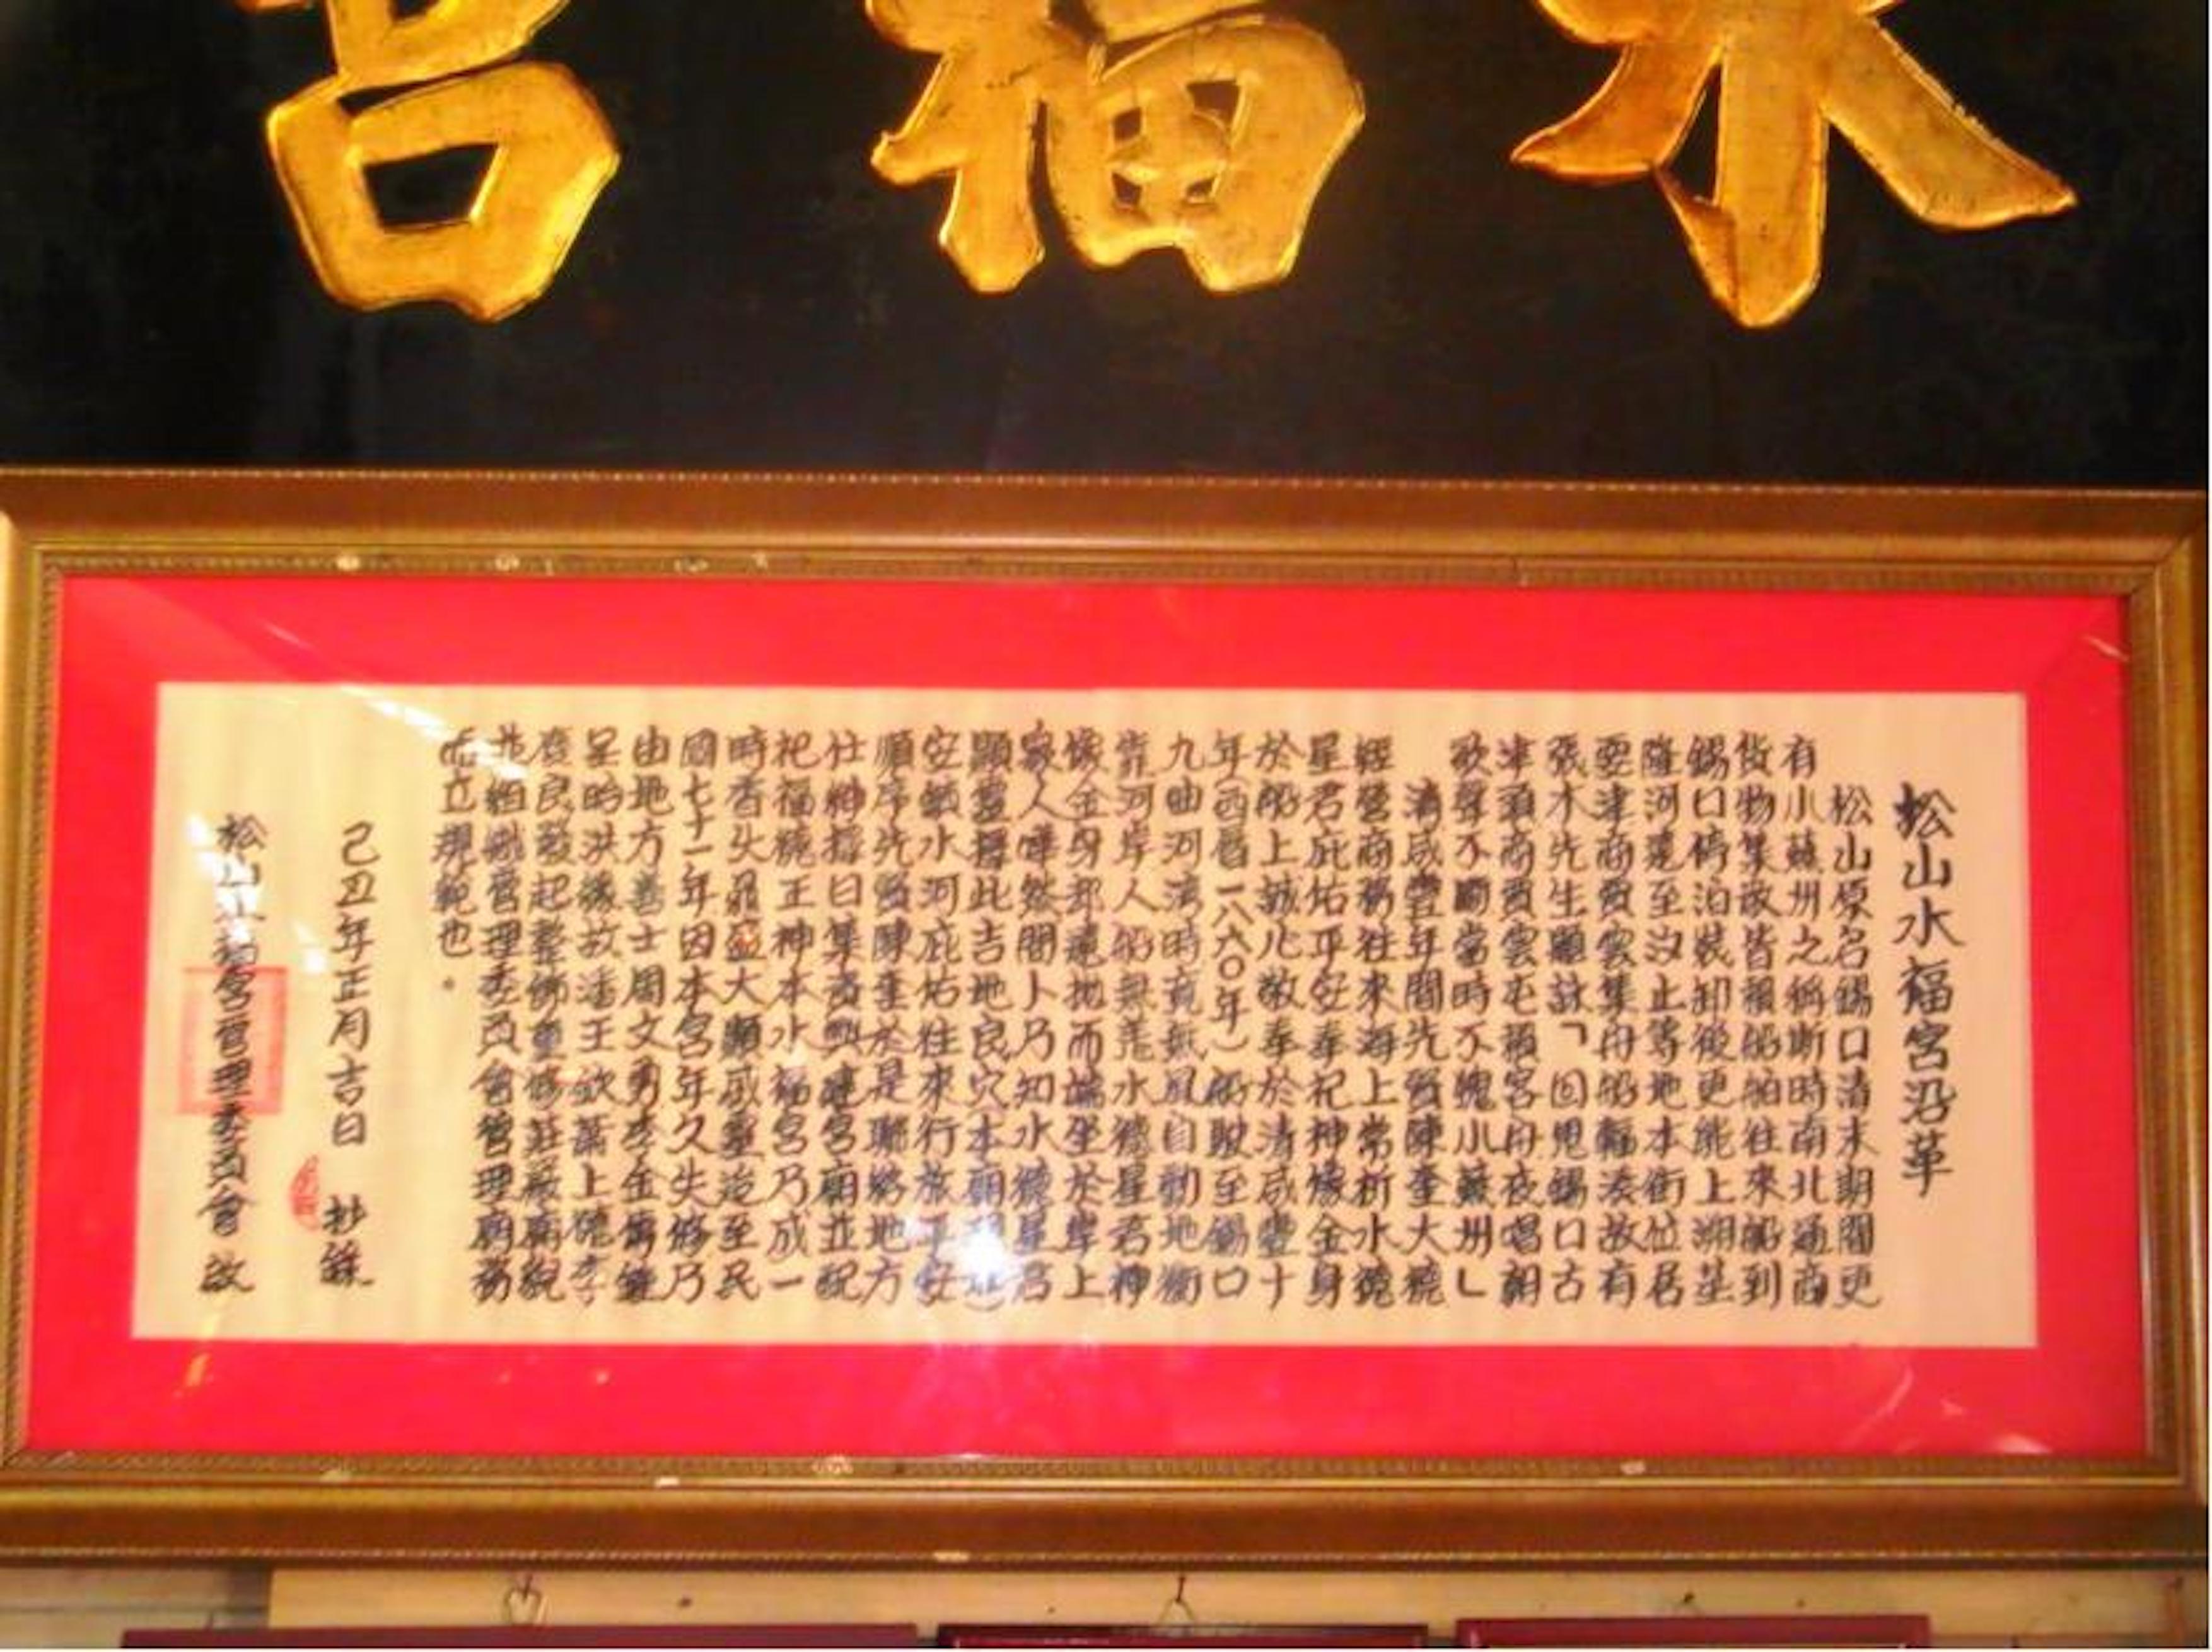 水福宮
松山水福宮沿革
松山原名錫口清末期間更
有小蘇州之稱斯時南北通商
貨物集散皆賴船舶往來船到
錫口停泊裝卸後更能上溯至
隆河遠至汐止等地本街位居
要津商賈雲集舟船輻湊故有
張木先生題詠「回思錫口古
津頭商賈雲屯賴客舟夜唱朝
歌聲不斷當時不愧小蘇州」
清咸豐年間先賢陳奎大德
經營商務往來海上常祈水德
星君庇佑平安奉祀神像金身
於船上誠心敬奉於清咸豐十
年(西曆一八六〇年)船駛至錫口
九曲河灣時竟無風自動地衝
靠河岸人船無恙水德星君神
像金身卻遠拋而端坐於岸上
眾人嘩然間卜乃知水德星君
顯靈擇此吉地良穴本廟現址
安鎮水河庇佑往來行旅平安
順序先賢陳奎於是聯絡地方
仕紳擇日集資興建宮廟並配
祀福德正神本水福宮乃成一
時香火鼎盛大顯威靈迨至民
國七十一年因本宮年久失修乃
由地方善士周文勇李金
洪後故潘王欽蕭上 李
良發起整修重修莊嚴廟貌
並組織管理委員會管理廟務
立 也。
己丑年正月吉日 抄錄
松山水福宮管理委員會 啟